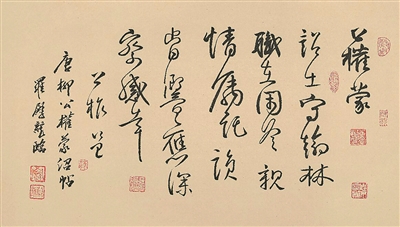 公權蒙
詔出守翰林
職在閑冷親
情囑託誰
肯響應深
察感幸
公權呈
唐柳公權蒙詔帖
羅